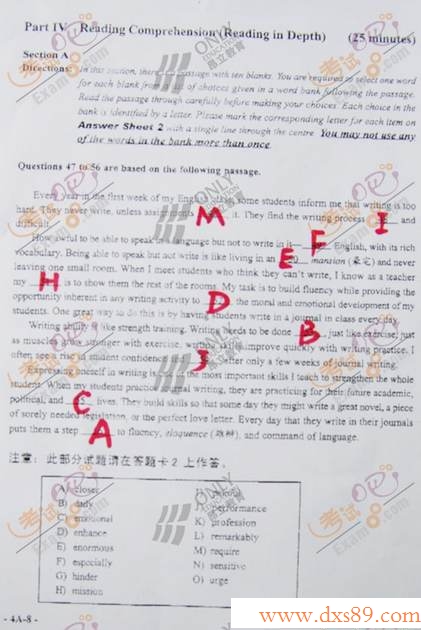 Part IV Reading Comprehension (Reading in Depth) (25 minutes)
Section A
Directions: In this section, there is a passage with ten blanks. You are required to select one word
for each blank from a list of choices given in a word bank following the passage.
Read the passage through carefully before making your choices. Each choice in the
bank is identified by a letter. Please mark the corresponding letter for each item on
Answer Sheet 2 with a single line through the centre. You may not use any
of the words in the bank more than once.
Questions 47 to 56 are based on the following passage.
Every year in the first week of my English class, some students inform me that writing is too
hard. They never write, unless assignments M it. They find the writing process I and
difficult.
How awful to be able to speak in a language but not to write in it F English, with its rich
vocabulary. Being able to speak but not write is like living in an E mansion (豪宅) and never
leaving one small room. When I meet students who think they can't write, I know as a teacher
my H is to show them the rest of the rooms. My task is to build fluency while providing the
opportunity inherent in any writing activity to D the moral and emotional development of my
students. One great way to do this is by having students write in a journal in class every day.
Writing ability is like strength training. Writing needs to be done B, just like exercise; just
as muscles grow stronger with exercise, writing skills improve quickly with writing practice. I
often see a rise in student confidence J after only a few weeks of journal writing.
Expressing oneself in writing is one of the most important skills I teach to strengthen the whole
student. When my students practice journal writing, they are practicing for their future academic,
political, and C lives. They build skills so that some day they might write a great novel, a piece
of sorely needed legislation, or the perfect love letter. Every day that they write in their journals
puts them a step A to fluency, eloquence (雄辩), and command of language.
注意：此部分试题请在答题卡 2 上作答。
A) closer
B) daily
C) emotional
D) enhance
E) enormous
F) especially
G) hinder
H) mission
J) performance
K) profession
L) remarkably
M) require
N) sensitive
O) urge
- 4A-8 -
www.dxs89.com
ONLY
昂立教育
考试吧
Exam8.com